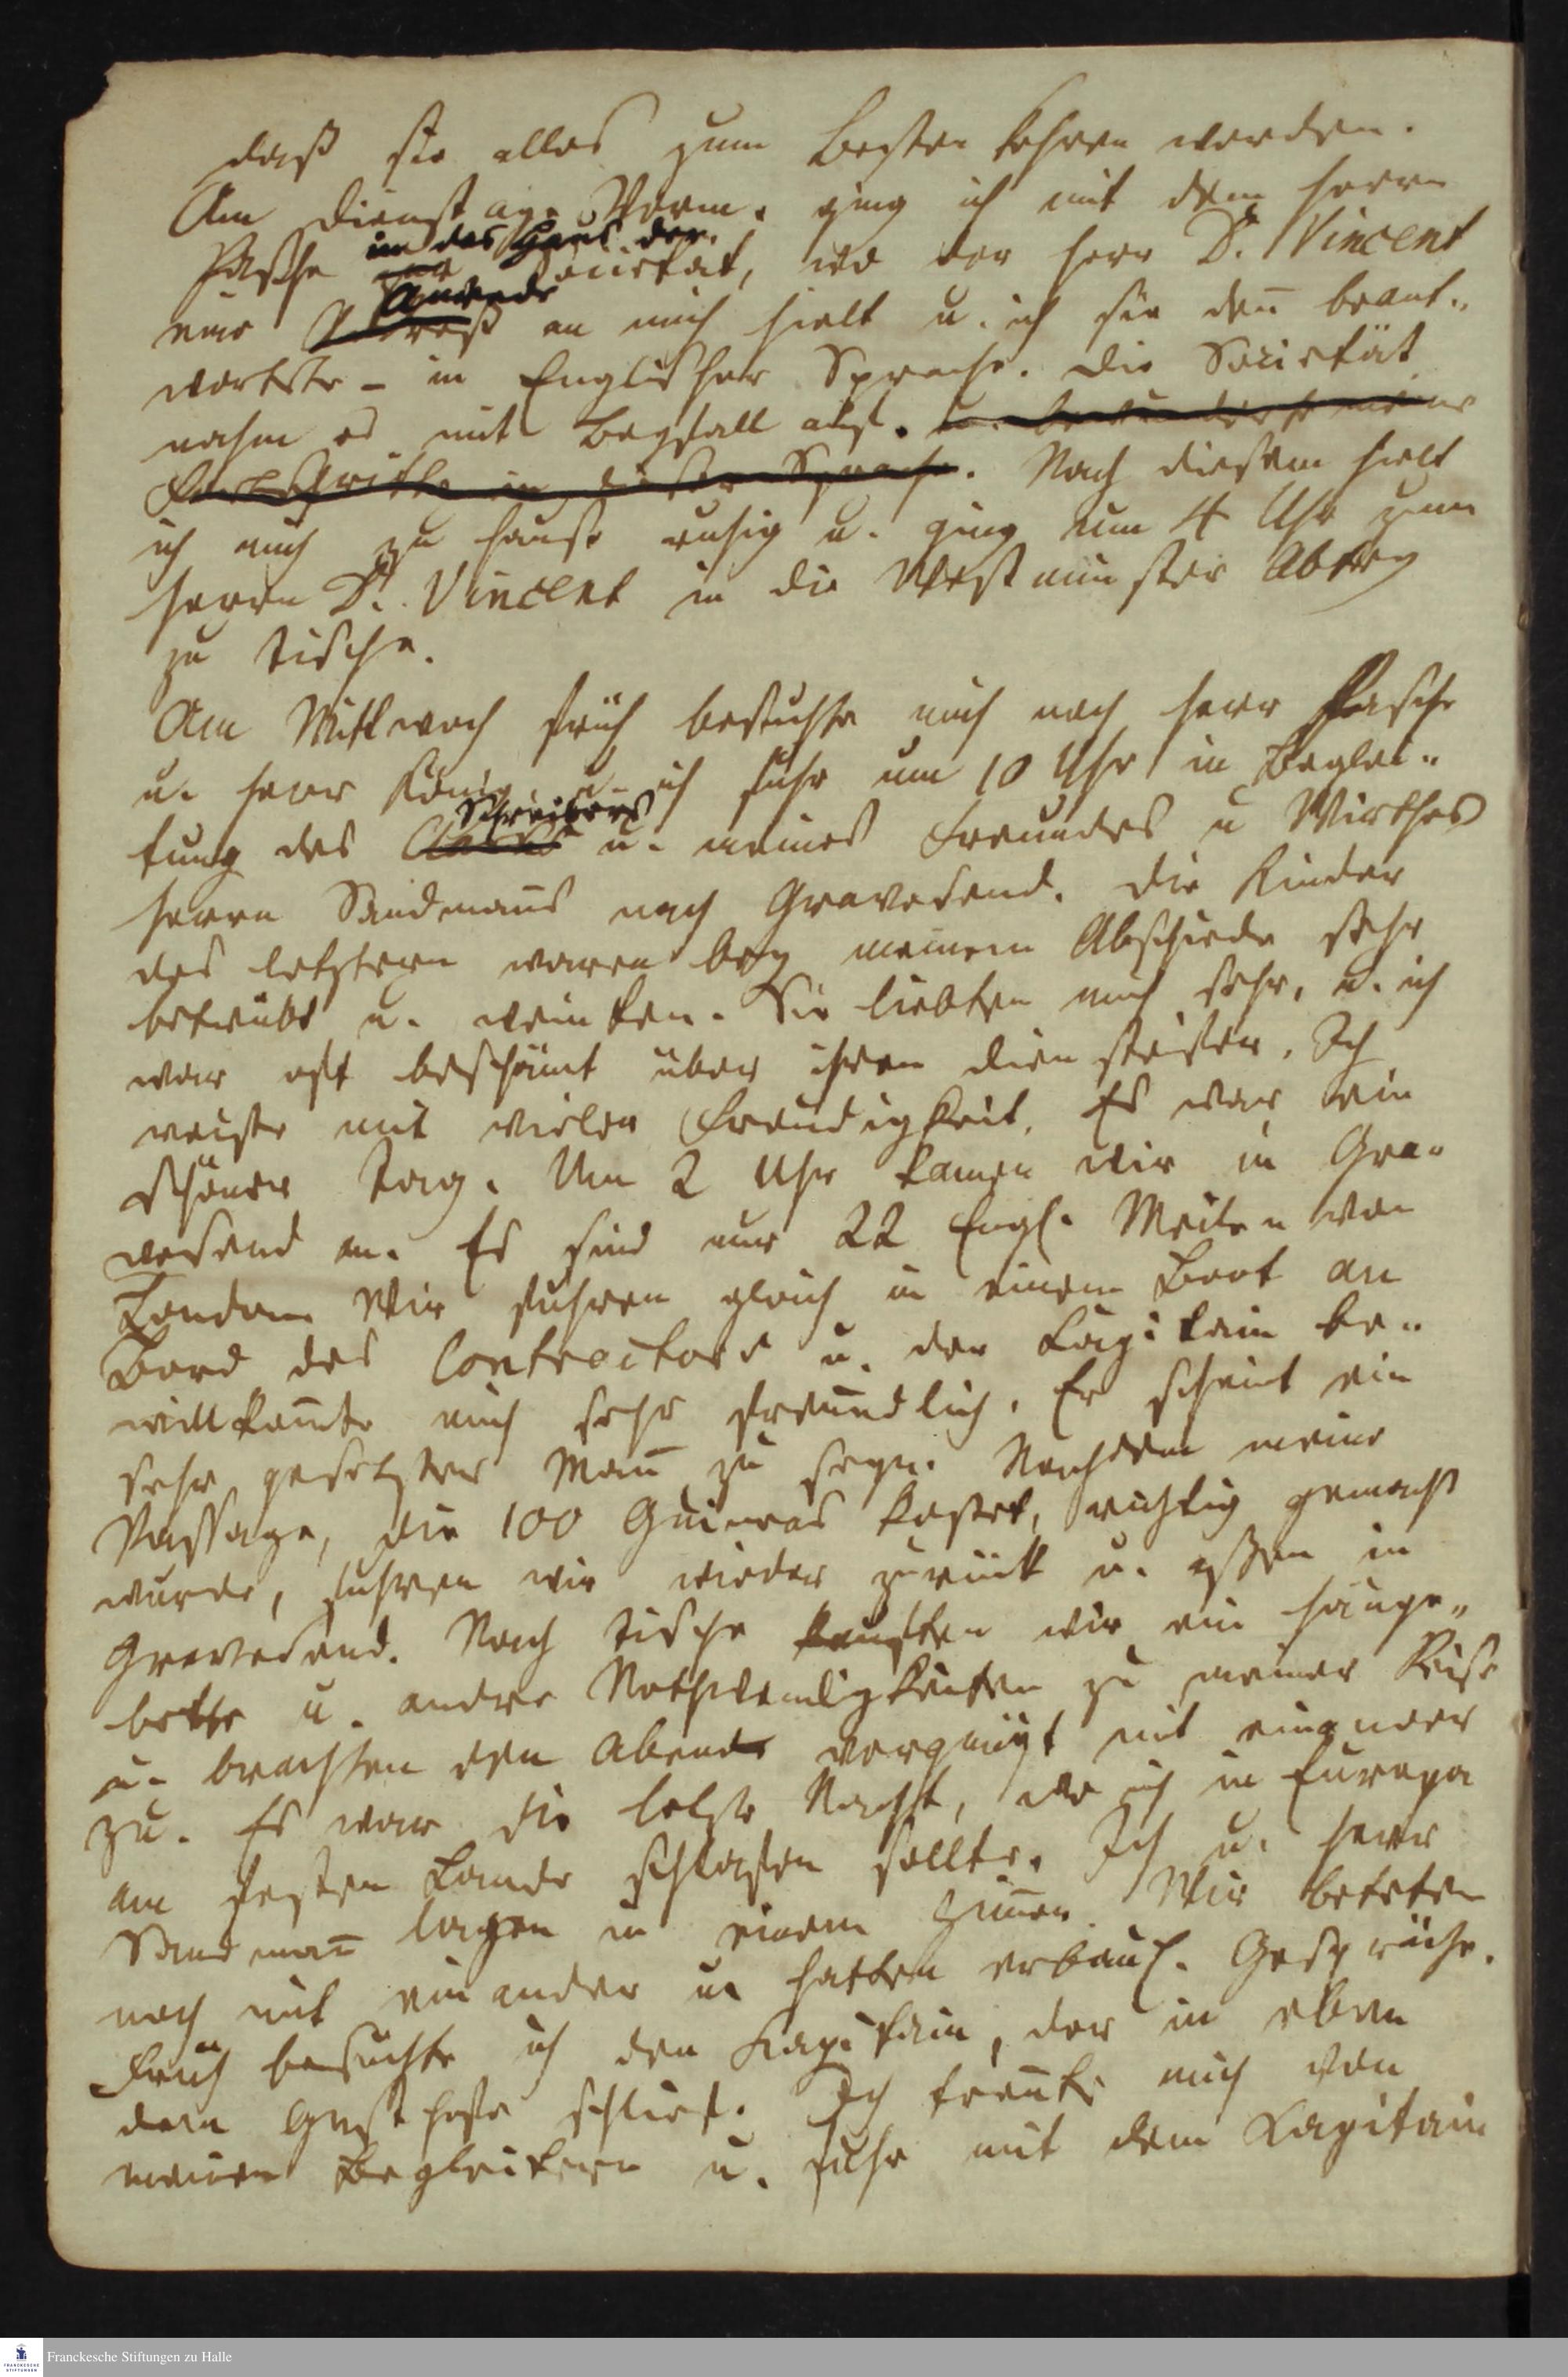 daß sie alles zum Besten kehren werden.
Am Dienstage Vorm. ging ich mit dem Herrn
in das Haus der
Pasche zur Societät, wo der Herr Dr. Vincent
Anrede
eine Adreß an mich hielt u. ich sie deñ beant-
wortete - in Englischer Sprache. Die Societät
nahm es mit Beyfall auf. u. bewunderte meine
Fortschritte in dieser Sprache. Nach diesem hielt
ich mich zu Hause ruhig u. ging um 4 Uhr zum
Herrn Dr. Vincent in die Westminster Abtey
zu Tische.
Am Mittwoch früh besuchte mich noch Herr Pasche
u. Herr König, u. ich fuhr um 10 Uhr in Beglei-
Schreibers
tung des Clerks u. meines Freundes u Wirthes
Herrn Sandmañs nach Gravesend. Die Kinder
des letztern waren bey meinem Abschiede sehr
betrübt u. weinten. Sie liebten mich sehr, u. ich
war oft beschämt über ihren Diensteifer. Ich
reiste mit vieler Freudigkeit. Es war ein
schöner Tag. Um 2 Uhr kamen wir in Gra-
vesend an. Es sind nur 22 Engl. Meilen von
London. Wir fuhren gleich in einem Boot an
Bord des Contractors u. der Kapitain be-
willkom̃te mich sehr freundlich. Er scheint ein
sehr gesetzter Mañ zu seyn. Nachdem meine
Passage, die 100 Guineas kostet, richtig gemacht
wurde, fuhren wir wieder zurück u. aßen in
Gravesend. Nach Tische kauften wir ein Hänge-
bette u. andre Nothwendigkeiten zu meiner Reise
u. brachten den Abend vergnügt mit einander
zu. Es war die letzte Nacht, wo ich in Europa
am festen Lande schlafen sollte. Ich u. Herr
Sandmañ lagen in einem Zim̃er. Wir beteten
noch mit einander u. hatten erbaul. Gespräche.
Früh besuchte ich den Kapitain, der in eben
dem Gasthofe schlief. Ich treñte mich von
meinen Begleitern u. fuhr mit dem Kapitain
Franckesche Stiftungen zu Halle